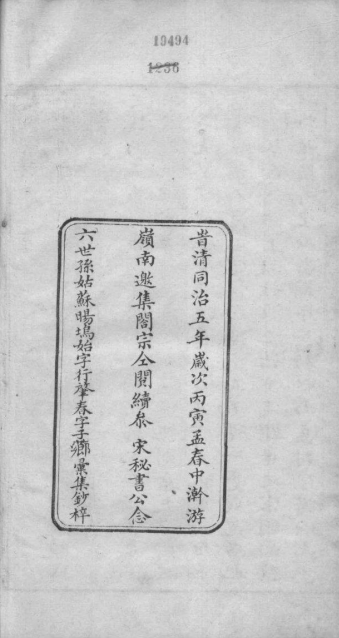 19494
1236
旹清同治五年歲次丙寅孟春中澣游
嶺南邀集闔宗仝閱續叅 宋秘書公念
六世孫姑蘇暘塢始字行肈春字子鄉彙集鈔梓